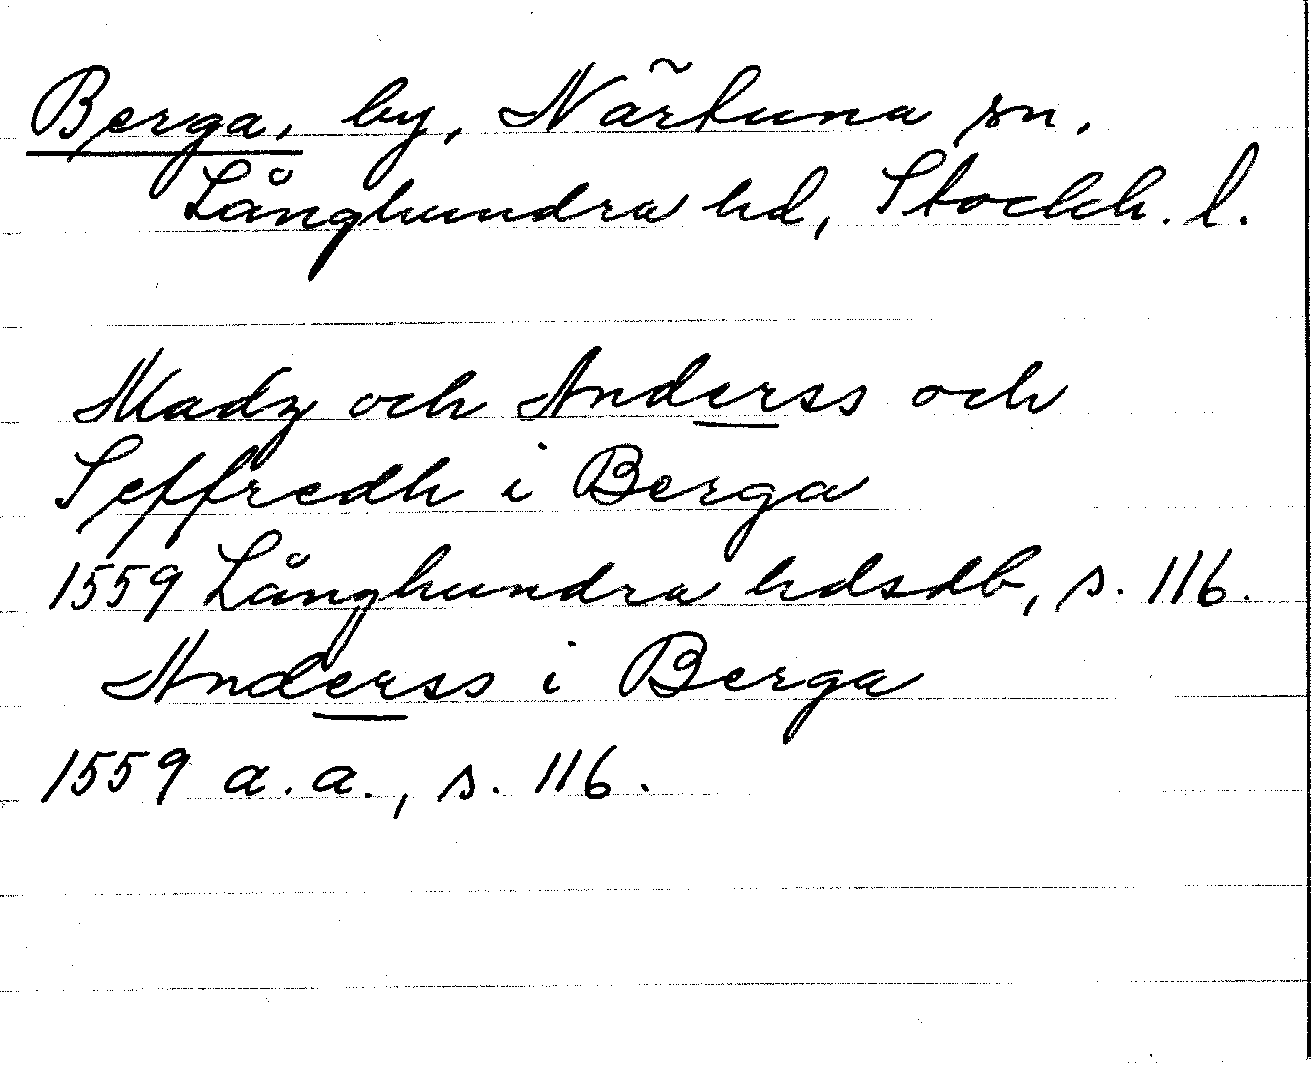 Berga, by, Närtuna sn.
Långhundra hd, Stockh. l.
Madz och Anderss och
Seffredh i Berga
1559 Långhundra hdsdb, s. 116.
Anderss i Berga
1559 a.a., s. 116.